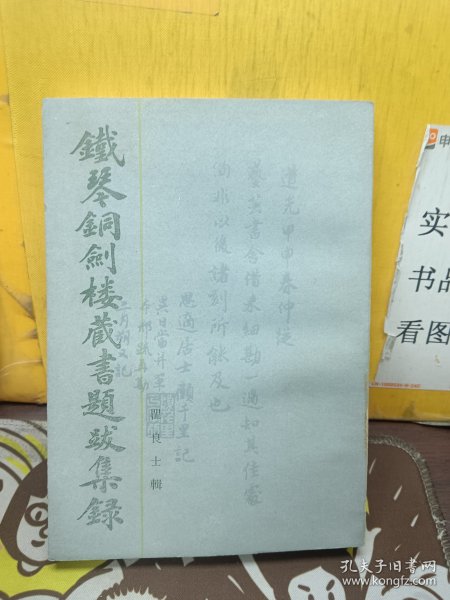 鐵琴銅劍樓藏書題跋集錄
瞿良士輯
道光甲申春仲從
藝芸書舍借來細勘一過知其佳處
尚非以後諸刻所能及也
思適居士顧千里記
实
书品
看图
孔夫子旧书网
www.kongfz.com